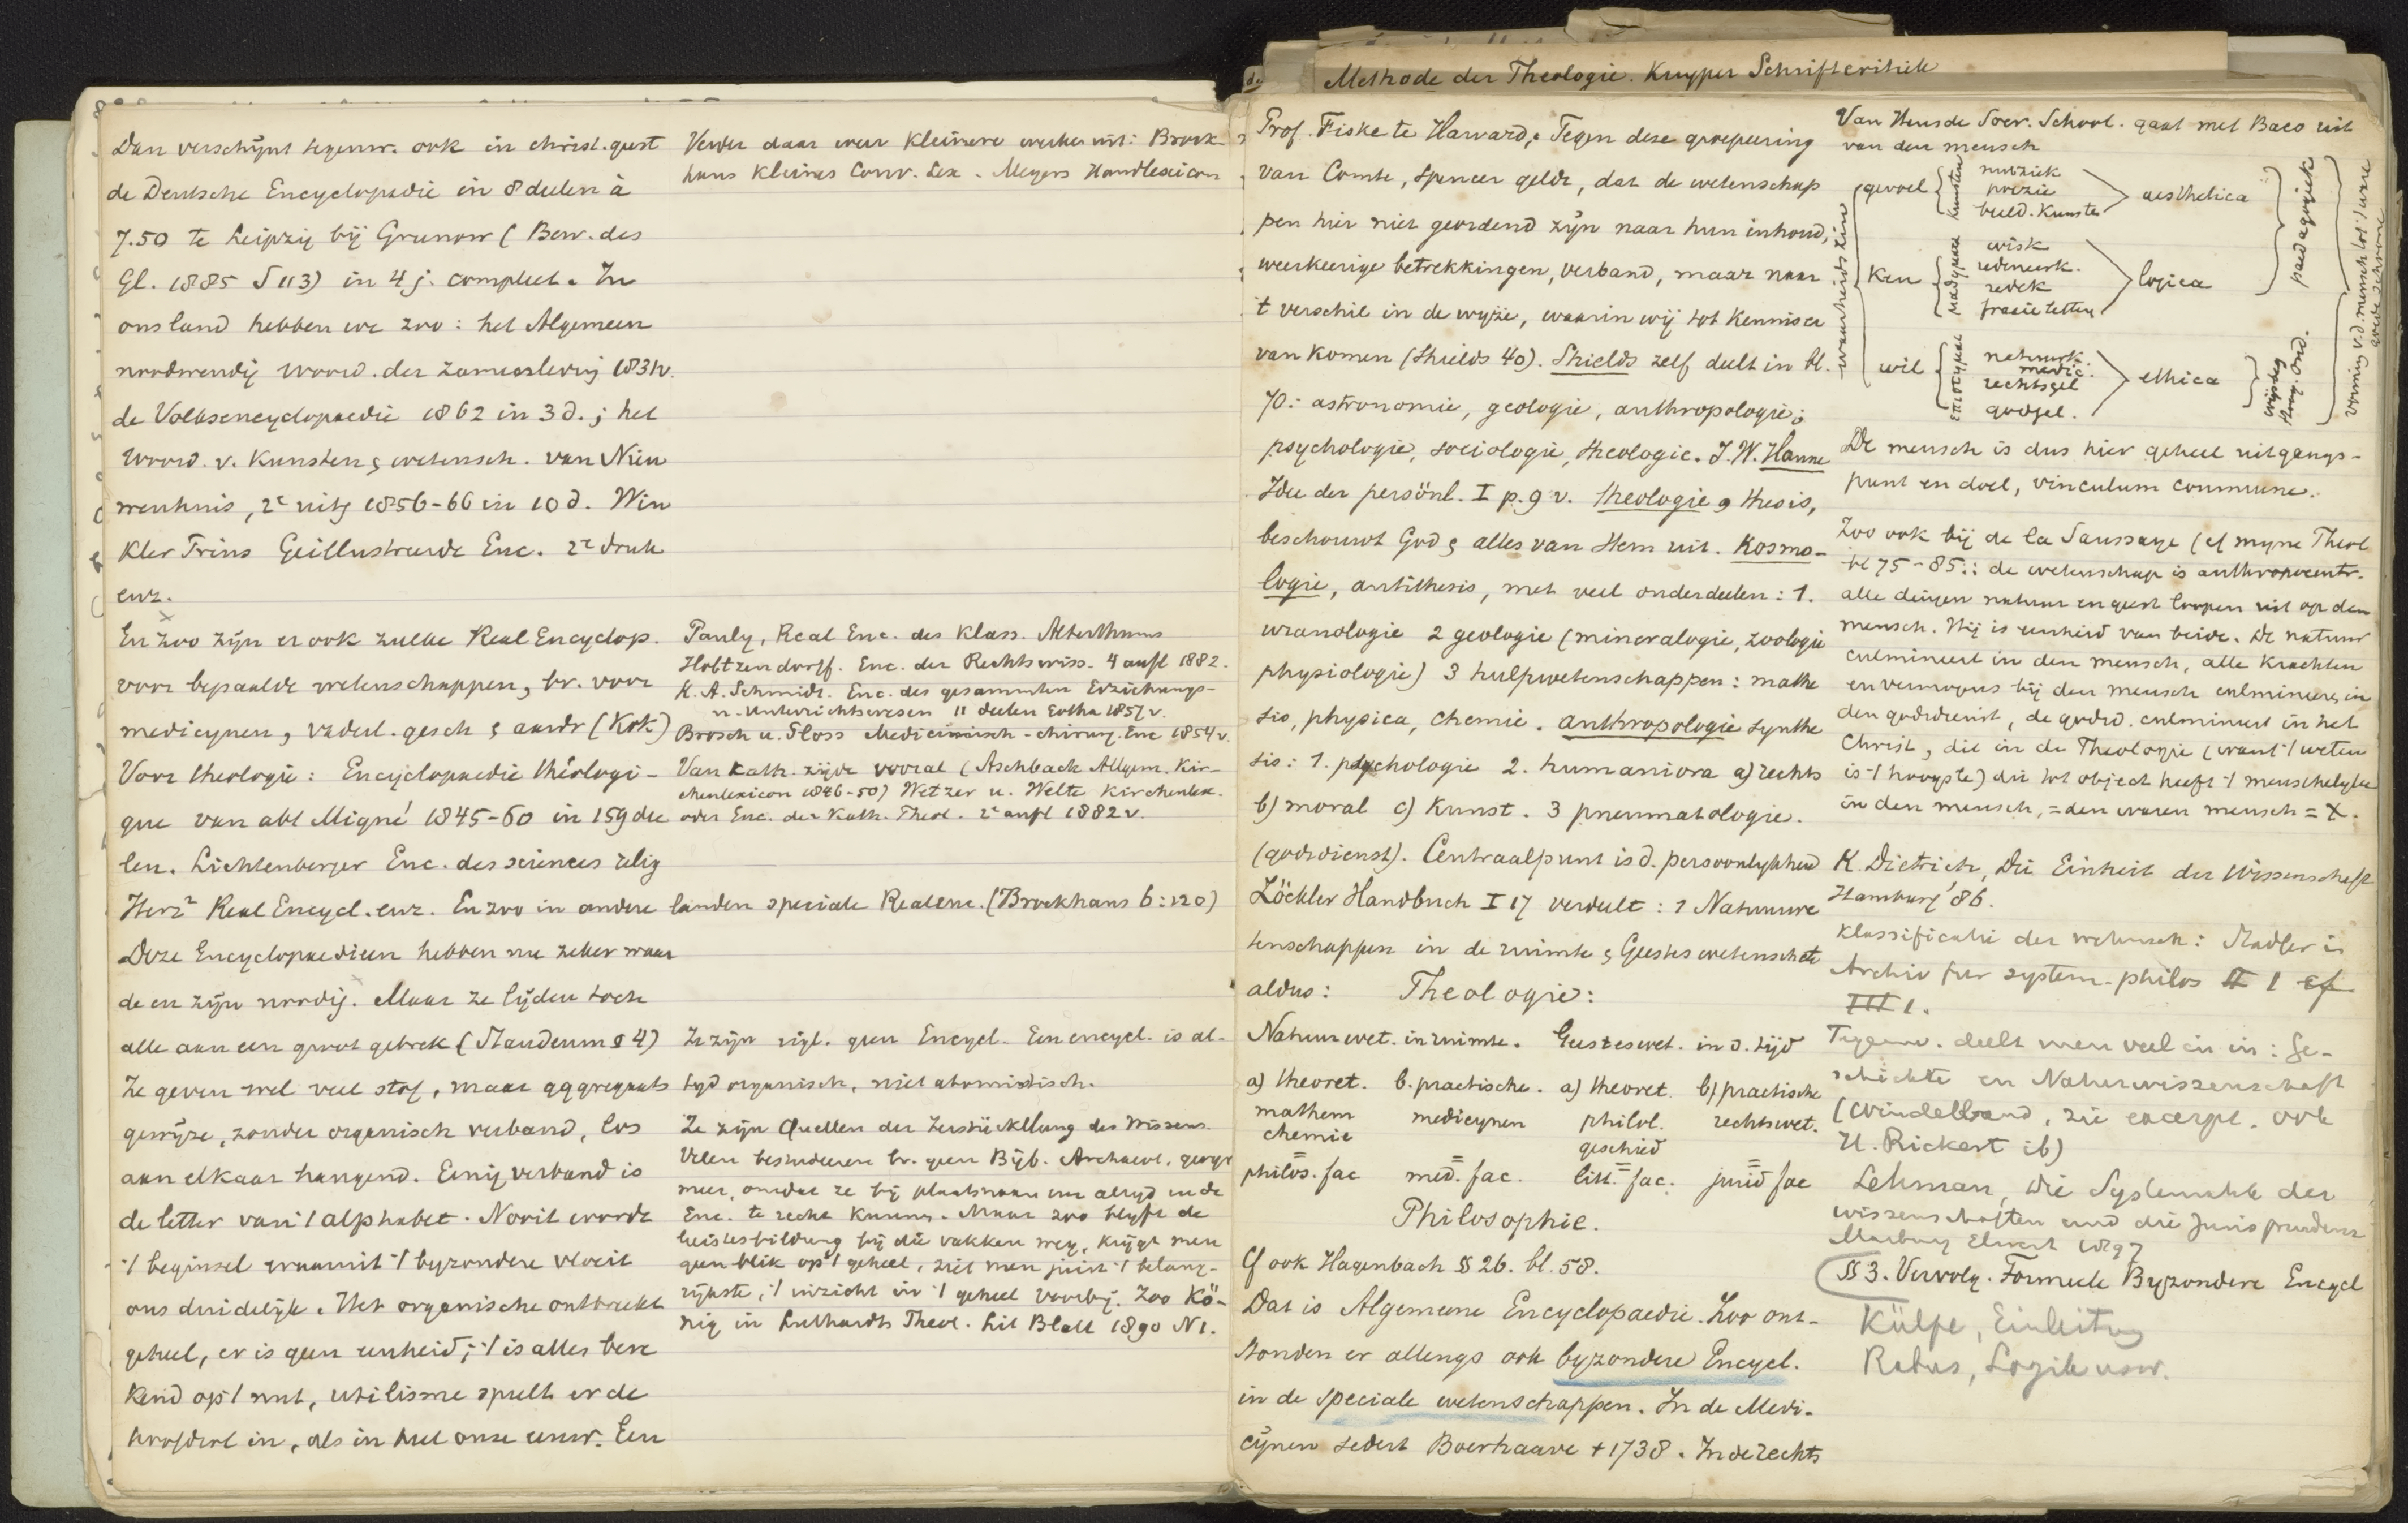 Dan verschijnt tegenw. ook in christ. geest
de Deutsche Encyclopädie in 8 deelen à
7.50 te Leipzig bij Grunow (Bew. des
Gl. 1885 S 113) in 4 j. compleet. In
ons land hebben we zoo: het Algemeen
noodwendig woord. der zamenleving 1831v.
de Volksencyclopaedie 1862 in 3 d.; het
Woord. v. Kunsten & wetensch. van Nieu
wenhuis, 2e uitg 1856-66 in 10 d. Win
kler Prins Geillustreerde Enc. 2e druk
enz.
En zoo zijn er ook zulke Real Encyclop.
voor bepaalde wetenschappen, bv. voor
medicynen, vaderl. gesch & aardr (Kok)
Voor theologie: Encyclopaedie théologi-
que van abt Migne 1845-60 in 159 dee
len. Lichtenberger Enc. des sciences relig
Herz² Real Encycl. enz. En zoo in andere landen speciale Realenc. (Brockhaus 6:120)
Deze Encyclopaedieen hebben nu zeker waar
de en zijn noodig. Maar ze lijden toch
alle aan een groot gebrek (Staudenm § 4)
Ze geven wel veel stof, maar aggregaats
gewijze, zonder organisch verband, los
aan elkaar hangend. Eenig verband is
de letter van 't alphabet. Nooit wordt
't beginsel waaruit 't byzondere vloeit
ons duidelijk. Het organische ontbreekt
geheel, er is geen eenheid; 't is alles bere
kend op 't nut, utilisme speelt er de
hoofdrol in, als in heel onze eeuw. Een
Verder daar weer kleinere werken uit: Brock-
haus kleines Conv. Lex. Meyers Handlexicon
Pauly, Real Enc. des klass. Alterthums
Holtzendorff. Enc. der Rechtswiss. 4 aufl 1882.
K. A. Schmidt. Enc. des gesammten Erziehungs-
u. Unterrichtswesen 11 deelen Gotha 1857 v.
Brosch u. Ploss Medicinisch-chirurg. Enc 1854 v.
Van kath. zijde vooral (Aschbach Allgem. Kir-
chenlexicon 1846-50) Wetzer u. Welte Kirchenlex.
oder Enc. der Kath. Theol. 2e aufl 1882 v.
Ze zijn eigl. geen Encycl. Een encycl. is al-
tyd organisch, niet atomistisch.
Ze zijn Quellen der Zerstückelung des Wissens.
Velen bestudeeren bv. geen Bijb. Archaeol, geogr
meer, omdat ze bij plaatsnaam enz altijd in de
Enc. te recht kunnen. Maar zoo blijft de
Geistesbildung bij die vakken weg, krijgt men
geen blik op 't geheel, ziet men juist 't belang-
rijkste, 't inzicht in 't geheel voorbij. Zoo Kö-
nig in Luthardts Theol. Lit Blatt 1890 N 1.
Methode der Theologie. Kuyper Schriftcritiek
Prof. Fiske te Harvard. Tegen deze groepeering
van Comte, Spencer geldt, dat de wetenschap
pen hier niet geordend zijn naar hun inhoud,
weerkeerige betrekkingen, verband, maar naar
't verschil in de wijze, waarin wij tot kennis er
van komen (Shields 40). Shields zelf deelt in bl.
70: astronomie, geologie, anthropologie;
psychologie, sociologie, theologie. J. W. Hanne
Idee der persönl. I p. 9 v. theologie, thesis,
beschouwt God & alles van Hem uit. Kosmo-
logie, antithesis, met veel onderdeelen: 1.
uranologie 2 geologie (mineralogie, zoologie
physiologie) 3 hulpwetenschappen: mathe
sis, physica, chemie. anthropologie synthe
sis: 1. psychologie 2. humaniora a) rechts
b) moral c) kunst. 3 pneumatologie.
(godsdienst). Centraalpunt is d. persoonlijkheid
Zöckler Handbuch I 17 verdeelt: 1 Natuurwe
tenschappen in de ruimte & Geesteswetensch
aldus: Theologie:
Natuurwet. in ruimte. Geesteswet. in d. tijd
a) theoret. b. practische. a) theoret. b) practische
mathem medicynen philol. rechtswet.
chemie geschied
= = = =
philos. fac med. fac. litt. fac. jurid fac
Philosophie.
Cf ook Hagenbach § 26. bl. 58.
Dat is Algemeene Encyclopaedie. Zoo ont-
stonden er allengs ook byzondere Encycl.
in de speciale wetenschappen. In de Medi-
cijnen sedert Boerhaave †1738. In de rechts
Van Heusde Socr. School. gaat met Baco uit
van den mensch
waarheids zin
gevoel kunsten muziek
poezie
beeld. kunsten aesthetica
Ken μαθηματα wisk
redeneerk.
redek
fraaie letten logica
paedagogiek
wil επιστημαι natuurk.
medic.
rechtsgel
godgel. ethica
wijsbeg
De mensch is dus hier geheel uitgangs-
punt en doel, vinculum commune.
Zoo ook bij de la Saussaye (cf myne Theol
bl 75-85.: de wetenschap is anthropocentr.
alle dingen natuur en geest loopen uit op den
mensch. Hij is eenheid van beide. De natuur
culmineert in den mensch, alle krachten
en vermogens bij den mensch culmineeren in
den godsdienst, de godsd. culmineert in het
Christ, die in de Theologie (want 't weten
is 't hoogste) die tot object heeft 't menschelyke
in den mensch, = den waren mensch = X.
K. Dietrich, Die Einheit der Wissenschaft
Hamburg '86.
Klassificatie der wetensch: Stadler in
Archiv für system. philos II 1 cf
III 1.
Tegenw. deelt men veel in in: Ge-
schichte en Naturwissenschaft
(Windelband, zie excerpt. ook
H. Rickert ib)
Lehman, Die Systematik der
Wissenschaften und die Jurisprudenz
Marburg Elwert 1897
§ 3. Vervolg. Formeele Byzondere Encycl
Külpe, Einleitung
Rabus, Logik usw.